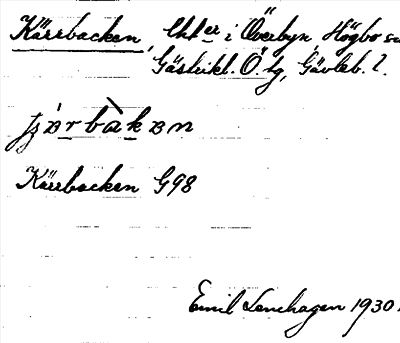 Kärrbacken, lht er i Överbyn, Högbo sn
Gästrikl. Ö. tg, Gävleb. l.
Kärrbacken G98
Emil Lenhagen 1930.